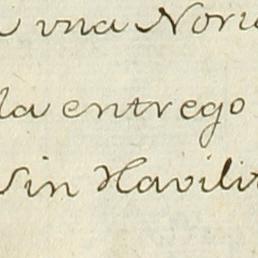 vna Noru
la entrego
Sin Havilit